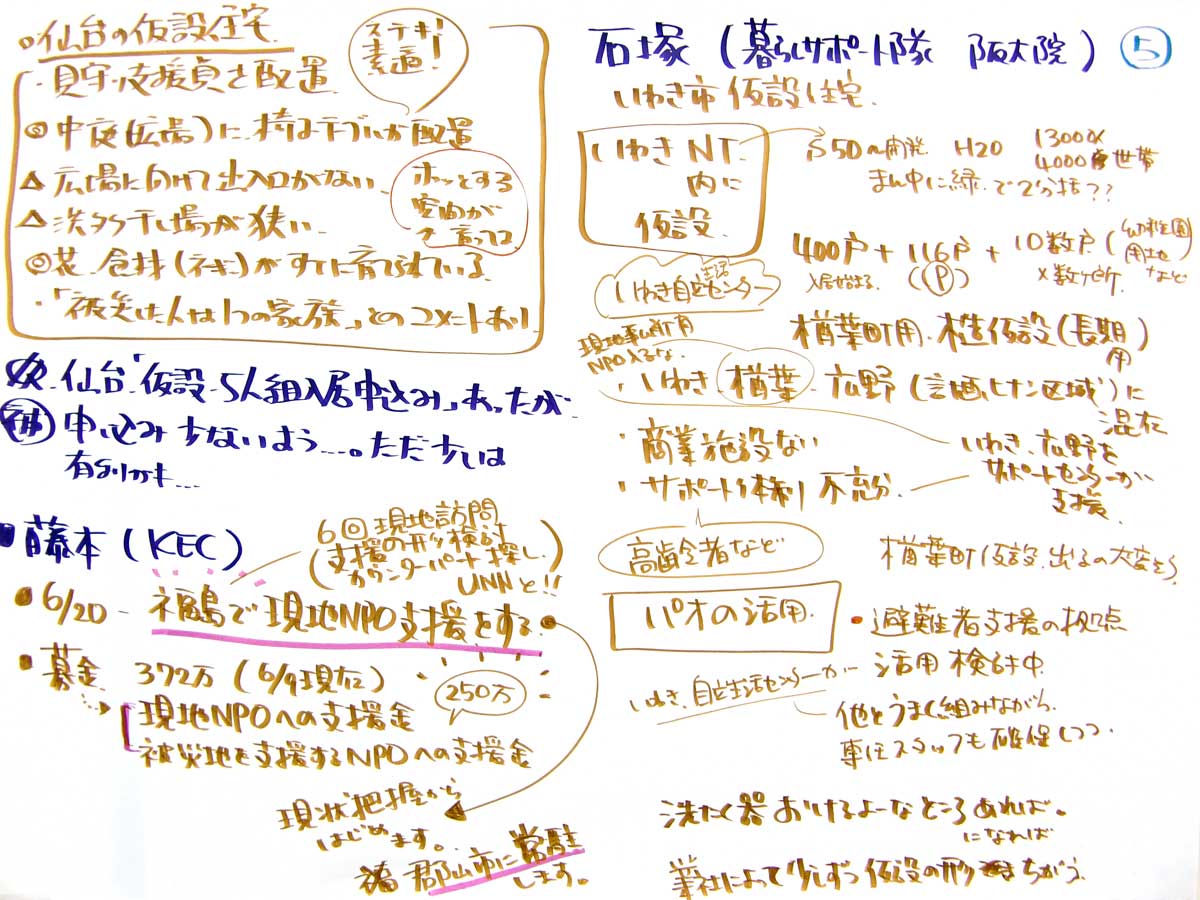 ・仙台の仮設住宅
ステキ!
素適!
・見守り支援員さ配置
◎中庭(広場)に椅子テーブルが配置
△広場に向けて出入口がない
ホッとする
空間が
と言ってた
△洗タク干し場が狭い
◎花 食材(ネギ)がすでに育てられている
・「被災した人は1つの家族」とのコメントあり
仙台「仮設 5人組入居申込み」あったが
申し込み少ないよう…。ただ少しは
有りかも…
・藤本(KEC)
6回現地訪問
(支援の形検討
カウンターパート探し
UNNと!!
・6/20 - 福島で現地NPO支援をする
・募金 372万(6/9現在)
250万
現地NPOへの支援金
被災地を支援するNPOへの支援金
現状把握から
はじめます。
郡山市に常駐
します。
石塚(暮らしサポート隊 阪大院) ⑤
いわき市仮設住宅
いわきNT
内に
仮設
S50〜開発 H20 13000人
4000世帯
まん中に緑で2分括??
400戸+116戸+10数戸(幼稚園
用地
など
入居始まる (P) ×数ヶ所
いわき自立生活センター
楢葉町用 木造仮設(長期)
用
現地事ム所有
NPO入るな
・いわき 楢葉 広野(計画ヒナン区域)に
混在
・商業施設ない
・サポート体制不充分
いわき、広野を
サポートセンターが
支援
高齢者など
楢葉町仮設 出るの大変そう
パオの活用
・避難者支援の拠点
活用検討中
いわき自立生活センターが
他とうまく組みながら
専任スタッフも確保しつつ
洗たく器おけるよーなところあれば。
になれば
業社によって少しずつ仮設の形ちがう